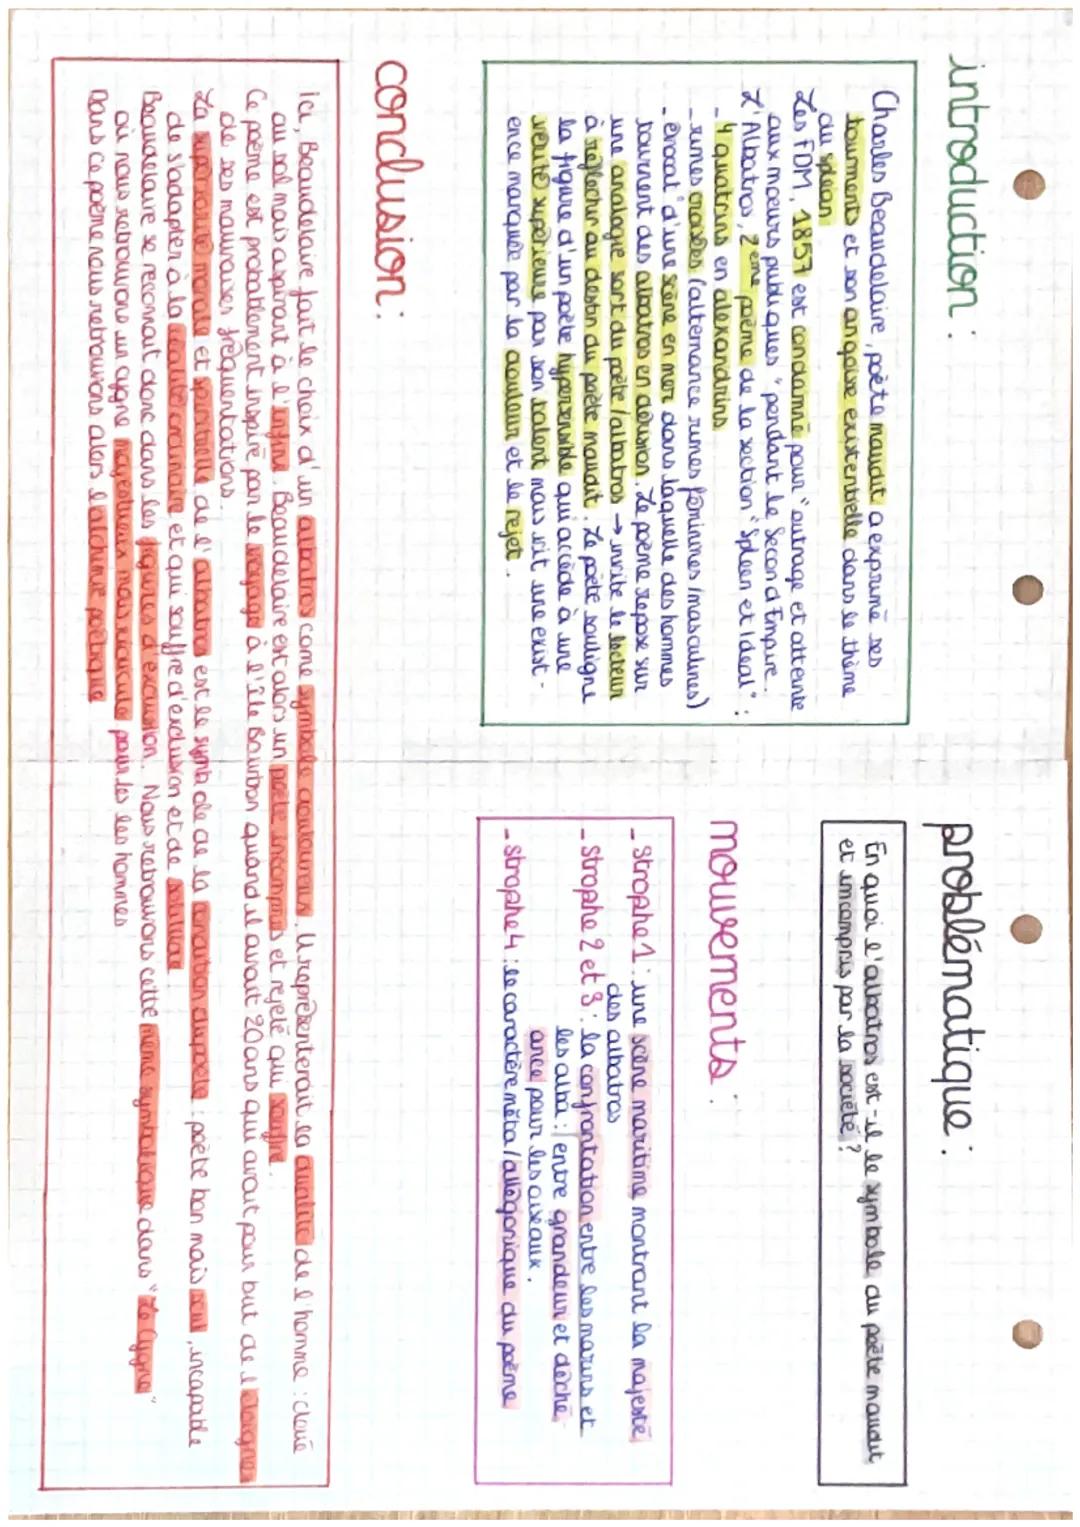 introduction :
Charles Beaudelaire, poète maudit a exprimé ses
tourments et son angoisse existentielle dans le thème
du spleen.
Les FDM, 1857 est condamné pour "outrage et atteinte
aux moeurs publiques" pendant le Second Empire.
L'Albatros, 2ème poème de la section "Spleen et Ideal" :
- 4 quatrains en alexandrins
- rimes croisées (alternance rimes féminines/masculines)
- evocat° d'une scène en mer dans laquelle des hommes
tournent des albatros en dérision. Le poème repose sur
une analogie sort du poète/albatros → invite le lecteur
à réfléchir au destin du poète maudit. Le poète souligne
la figure d'un poète hypersensible qui accède à une
vérité supérieure par son talent mais vit une exist-
ence marquée par la douleur et le rejet.
problématique :
En quoi l'albatros est-il le symbole du poète maudit
et imcompris par la société ?
mouvements :
- Strophe 1 : une scène maritime montrant la majesté
des albatros
- Strophe 2 et 3 : la confrontation entre les marins et
les alba : entre grandeur et déché-
ance pour les oiseaux.
- Strophe 4 : le caractère méta/allégorique du poème
conclusion :
Ici, Beaudelaire fait le choix d'un albatros come symbole douloureux. Il représenterait la dualité de l'homme : cloué
au sol mais aspirant à l'infini. Beaudelaire est alors un poète incompris et rejeté qui souffre.
Ce poème est probablement inspiré par le voyage à l'île Bourbon quand il avait 20 ans qui avait pour but de l'éloigner
de ses mauvaises fréquentations.
La supériorité morale et spirituelle de l'albatros est le symbole de la condition du poète : poète bon mais seul, incapable
de s'adapter à la réalité ordinaire et qui souffre d'exclusion et de solitude
Beaudelaire se reconnait donc dans les figures d'exclusion. Nous retrouvons cette même symbolique dans "Le Cygne"
où nous retrouvons un cygne majestueux mais ridicule pour les les hommes
Dans ce poème nous retrouvons alors l'alchimie poétique